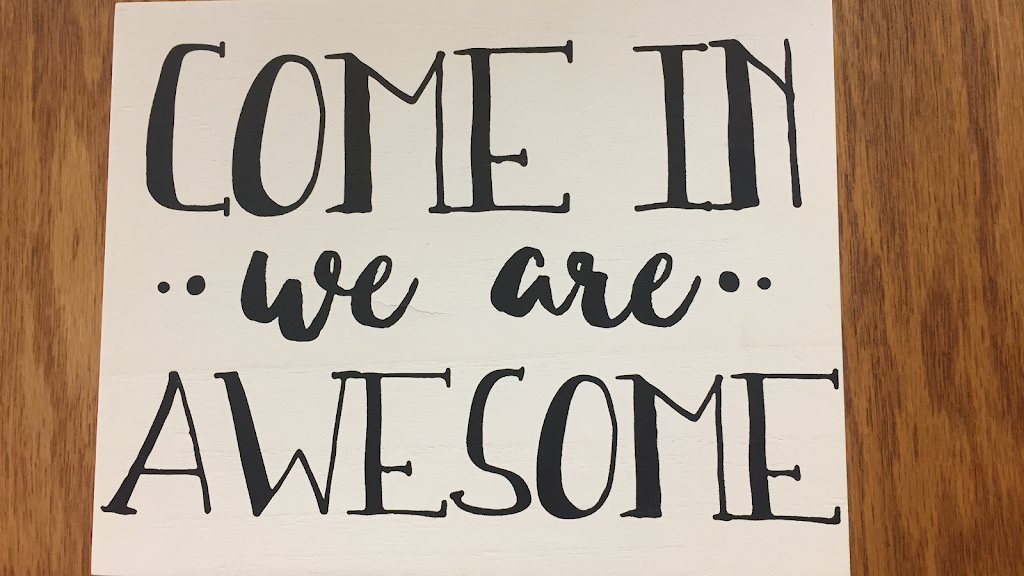 COME IN
••we are••
AWESOME